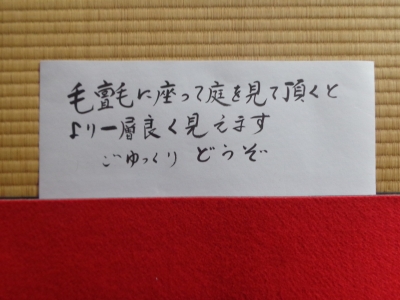 毛氈に座って庭を見て頂くと
より一層良く見えます
ごゆっくり どうぞ